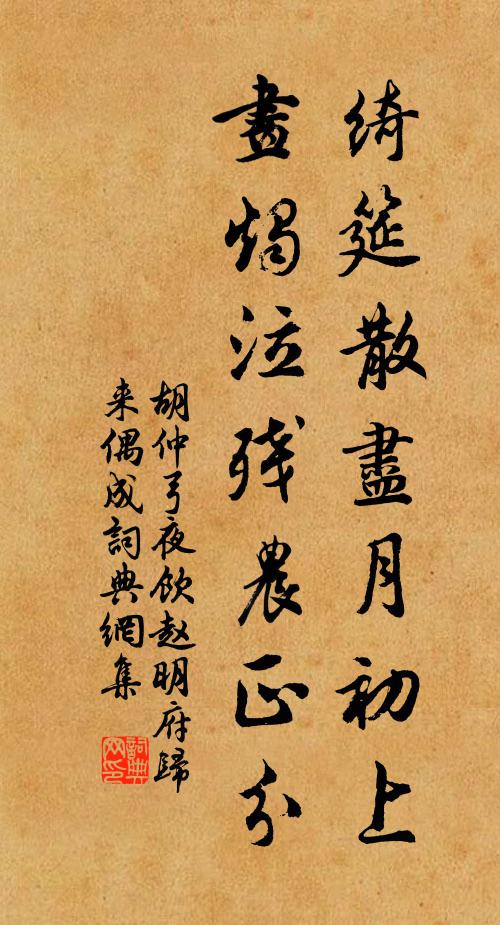 綺筵散盡月初上
畫燭泣残農正分
胡仲弓夜飲赵明府歸
来偶成詞典網集
詞典
网印